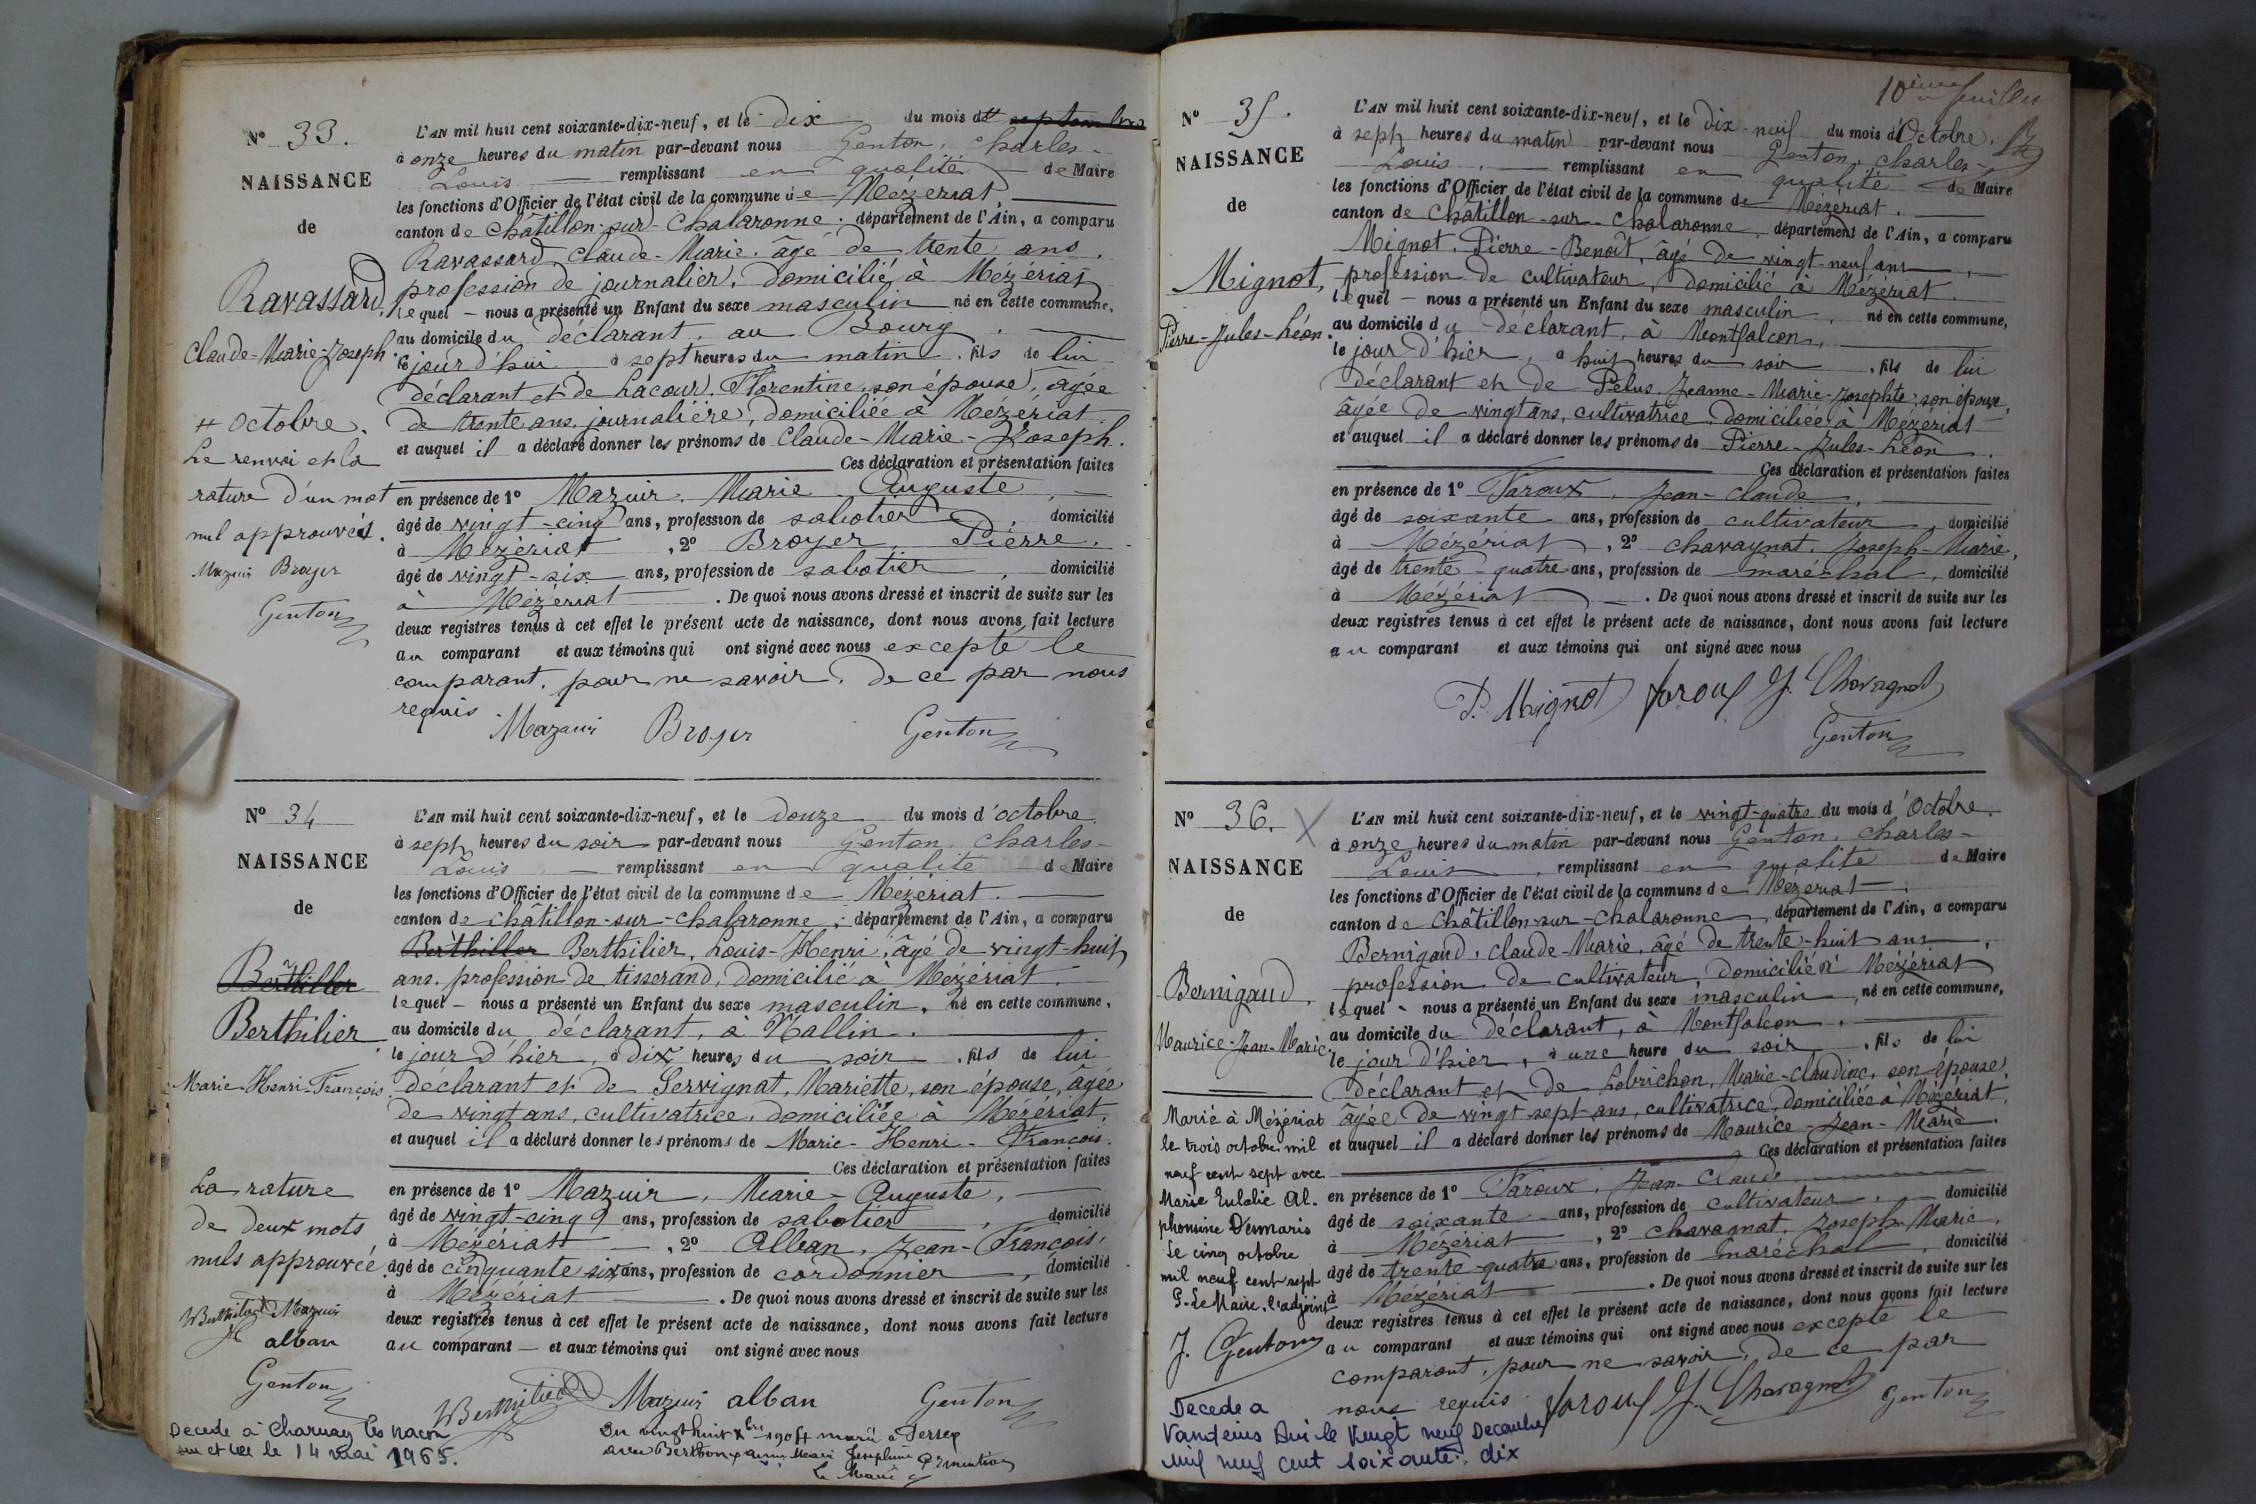 N° 33.
NAISSANCE
de
Ravassard,
Claude-Marie-Joseph.
# Octobre.
Le renvoi et la
rature d'un mot
nul approuvés.
Mazuir Broyer
Genton
L'AN mil huit cent soixante-dix-neuf, et le dix du mois d# septembre
à onze heures du matin par-devant nous Genton, Charles-
Louis remplissant en qualité de Maire
les fonctions d'Officier de l'état civil de la commune de Mézériat,
canton de Châtillon-sur-Chalaronne, département de l'Ain, a comparu
Ravassard, Claude-Marie, âgé de trente ans,
profession de journalier, domicilié à Mézériat
lequel — nous a présenté un Enfant du sexe masculin né en cette commune,
au domicile du déclarant, au Bourg.
le jour d'hui, à sept heures du matin, fils de lui
déclarant et de Lacour, Florentine, son épouse, âgée
de trente ans, journalière, domiciliée à Mézériat
et auquel il a déclaré donner les prénoms de Claude-Marie-Joseph.
Ces déclaration et présentation faites
en présence de 1° Mazuir, Marie Auguste,
âgé de vingt-cinq ans, profession de sabotier, domicilié
à Mézériat, 2° Broyer, Pierre,
âgé de vingt-six ans, profession de sabotier, domicilié
à Mézériat. De quoi nous avons dressé et inscrit de suite sur les
deux registres tenus à cet effet le présent acte de naissance, dont nous avons fait lecture
au comparant et aux témoins qui ont signé avec nous excepté le
comparant, pour ne savoir, de ce par nous
requis
Mazuir Broyer Genton
N° 34
NAISSANCE
de
Berthiller
Berthilier,
Marie-Henri-François
La rature
de deux mots
nuls approuvée
Berthilier Mazuir
alban
Genton
Decede à Charnay les Macon
le 14 mai 1965.
L'AN mil huit cent soixante-dix-neuf, et le douze du mois d'octobre
à sept heures du soir par-devant nous Genton, Charles-
Louis — remplissant en qualité de Maire
les fonctions d'Officier de l'état civil de la commune de Mézériat.
canton de Châtillon-sur-Chalaronne, département de l'Ain, a comparu
Berthiller Berthilier, Louis-Henri, âgé de vingt-huit
ans, profession de tisserand, domicilié à Mézériat.
lequel — nous a présenté un Enfant du sexe masculin, né en cette commune,
au domicile du déclarant, à Nallin.
le jour d'hier, à dix heures du soir, fils de lui
déclarant et de Servignat, Mariette, son épouse, âgée
de vingt ans, cultivatrice, domiciliée à Mézériat,
et auquel il a déclaré donner les prénoms de Marie-Henri-François.
Ces déclaration et présentation faites
en présence de 1° Mazuir, Marie-Auguste,
âgé de vingt-cinq ans, profession de sabotier, domicilié
à Mézériat, 2° Alban, Jean-François,
âgé de cinquante six ans, profession de cordonnier, domicilié
à Mézériat. De quoi nous avons dressé et inscrit de suite sur les
deux registres tenus à cet effet le présent acte de naissance, dont nous avons fait lecture
au comparant — et aux témoins qui ont signé avec nous
Berthilier Mazuir alban Genton
vingt huit marié à
avec Joséphine
Le Maire
10ème feuillet
N° 35.
NAISSANCE
de
Mignot,
Pierre-Jules-Léon.
L'AN mil huit cent soixante-dix-neuf, et le dix-neuf du mois d'Octobre.
à sept heures du matin par-devant nous Genton, Charles-
Louis, remplissant en qualité de Maire
les fonctions d'Officier de l'état civil de la commune de Mézériat.
canton de Châtillon-sur-Chalaronne, département de l'Ain, a comparu
Mignot, Pierre-Benoît, âgé de vingt-neuf ans,
profession de cultivateur, domicilié à Mézériat.
lequel — nous a présenté un Enfant du sexe masculin, né en cette commune,
au domicile du déclarant, à Montfalcon,
le jour d'hier, à huit heures du soir, fils de lui
déclarant et de Pelus, Jeanne-Marie-Josephte, son épouse,
âgée de vingt ans, cultivatrice, domiciliée à Mézériat
et auquel il a déclaré donner les prénoms de Pierre-Jules-Léon.
Ces déclaration et présentation faites
en présence de 1° Taroux, Jean-Claude,
âgé de soixante ans, profession de cultivateur, domicilié
à Mézériat, 2° Chavagnat, Joseph-Marie,
âgé de trente-quatre ans, profession de maréchal, domicilié
à Mézériat. De quoi nous avons dressé et inscrit de suite sur les
deux registres tenus à cet effet le présent acte de naissance, dont nous avons fait lecture
au comparant et aux témoins qui ont signé avec nous
P. Mignot Taroux J. Chavagnat
Genton
N° 36.
NAISSANCE
de
Bernigaud,
Maurice-Jean-Marie.
Marié à Mézériat
le trois octobre mil
neuf cent sept avec
Marie Eulalie Al-
phonsine Desmaris
Le cinq octobre
mil neuf cent sept
P. Le Maire, l'adjoint
J. Genton
Decede a
Vandeins Ain le Vingt neuf Decembre
mil neuf cent soixante-dix
L'AN mil huit cent soixante-dix-neuf, et le vingt-quatre du mois d'Octobre.
à onze heures du matin par-devant nous Genton, Charles-
Louis, remplissant en qualité de Maire
les fonctions d'Officier de l'état civil de la commune de Mézériat.
canton de Châtillon-sur-Chalaronne, département de l'Ain, a comparu
Bernigaud, Claude-Marie, âgé de trente-huit ans,
profession de cultivateur, domicilié à Mézériat
lequel - nous a présenté un Enfant du sexe masculin, né en cette commune,
au domicile du déclarant, à Montfalcon,
le jour d'hier, à une heure du soir, fils de lui
déclarant et de Lobrichon, Marie-Claudine, son épouse,
âgée de vingt sept ans, cultivatrice, domiciliée à Mézériat,
et auquel il a déclaré donner les prénoms de Maurice-Jean-Marie.
Ces déclaration et présentation faites
en présence de 1° Taroux, Jean Claude
âgé de soixante ans, profession de cultivateur, domicilié
à Mézériat, 2° Chavagnat, Joseph Marie,
âgé de trente-quatre ans, profession de maréchal, domicilié
à Mézériat. De quoi nous avons dressé et inscrit de suite sur les
deux registres tenus à cet effet le présent acte de naissance, dont nous avons fait lecture
au comparant et aux témoins qui ont signé avec nous excepté le
comparant, pour ne savoir, de ce par
nous requis Taroux J. Chavagnat Genton